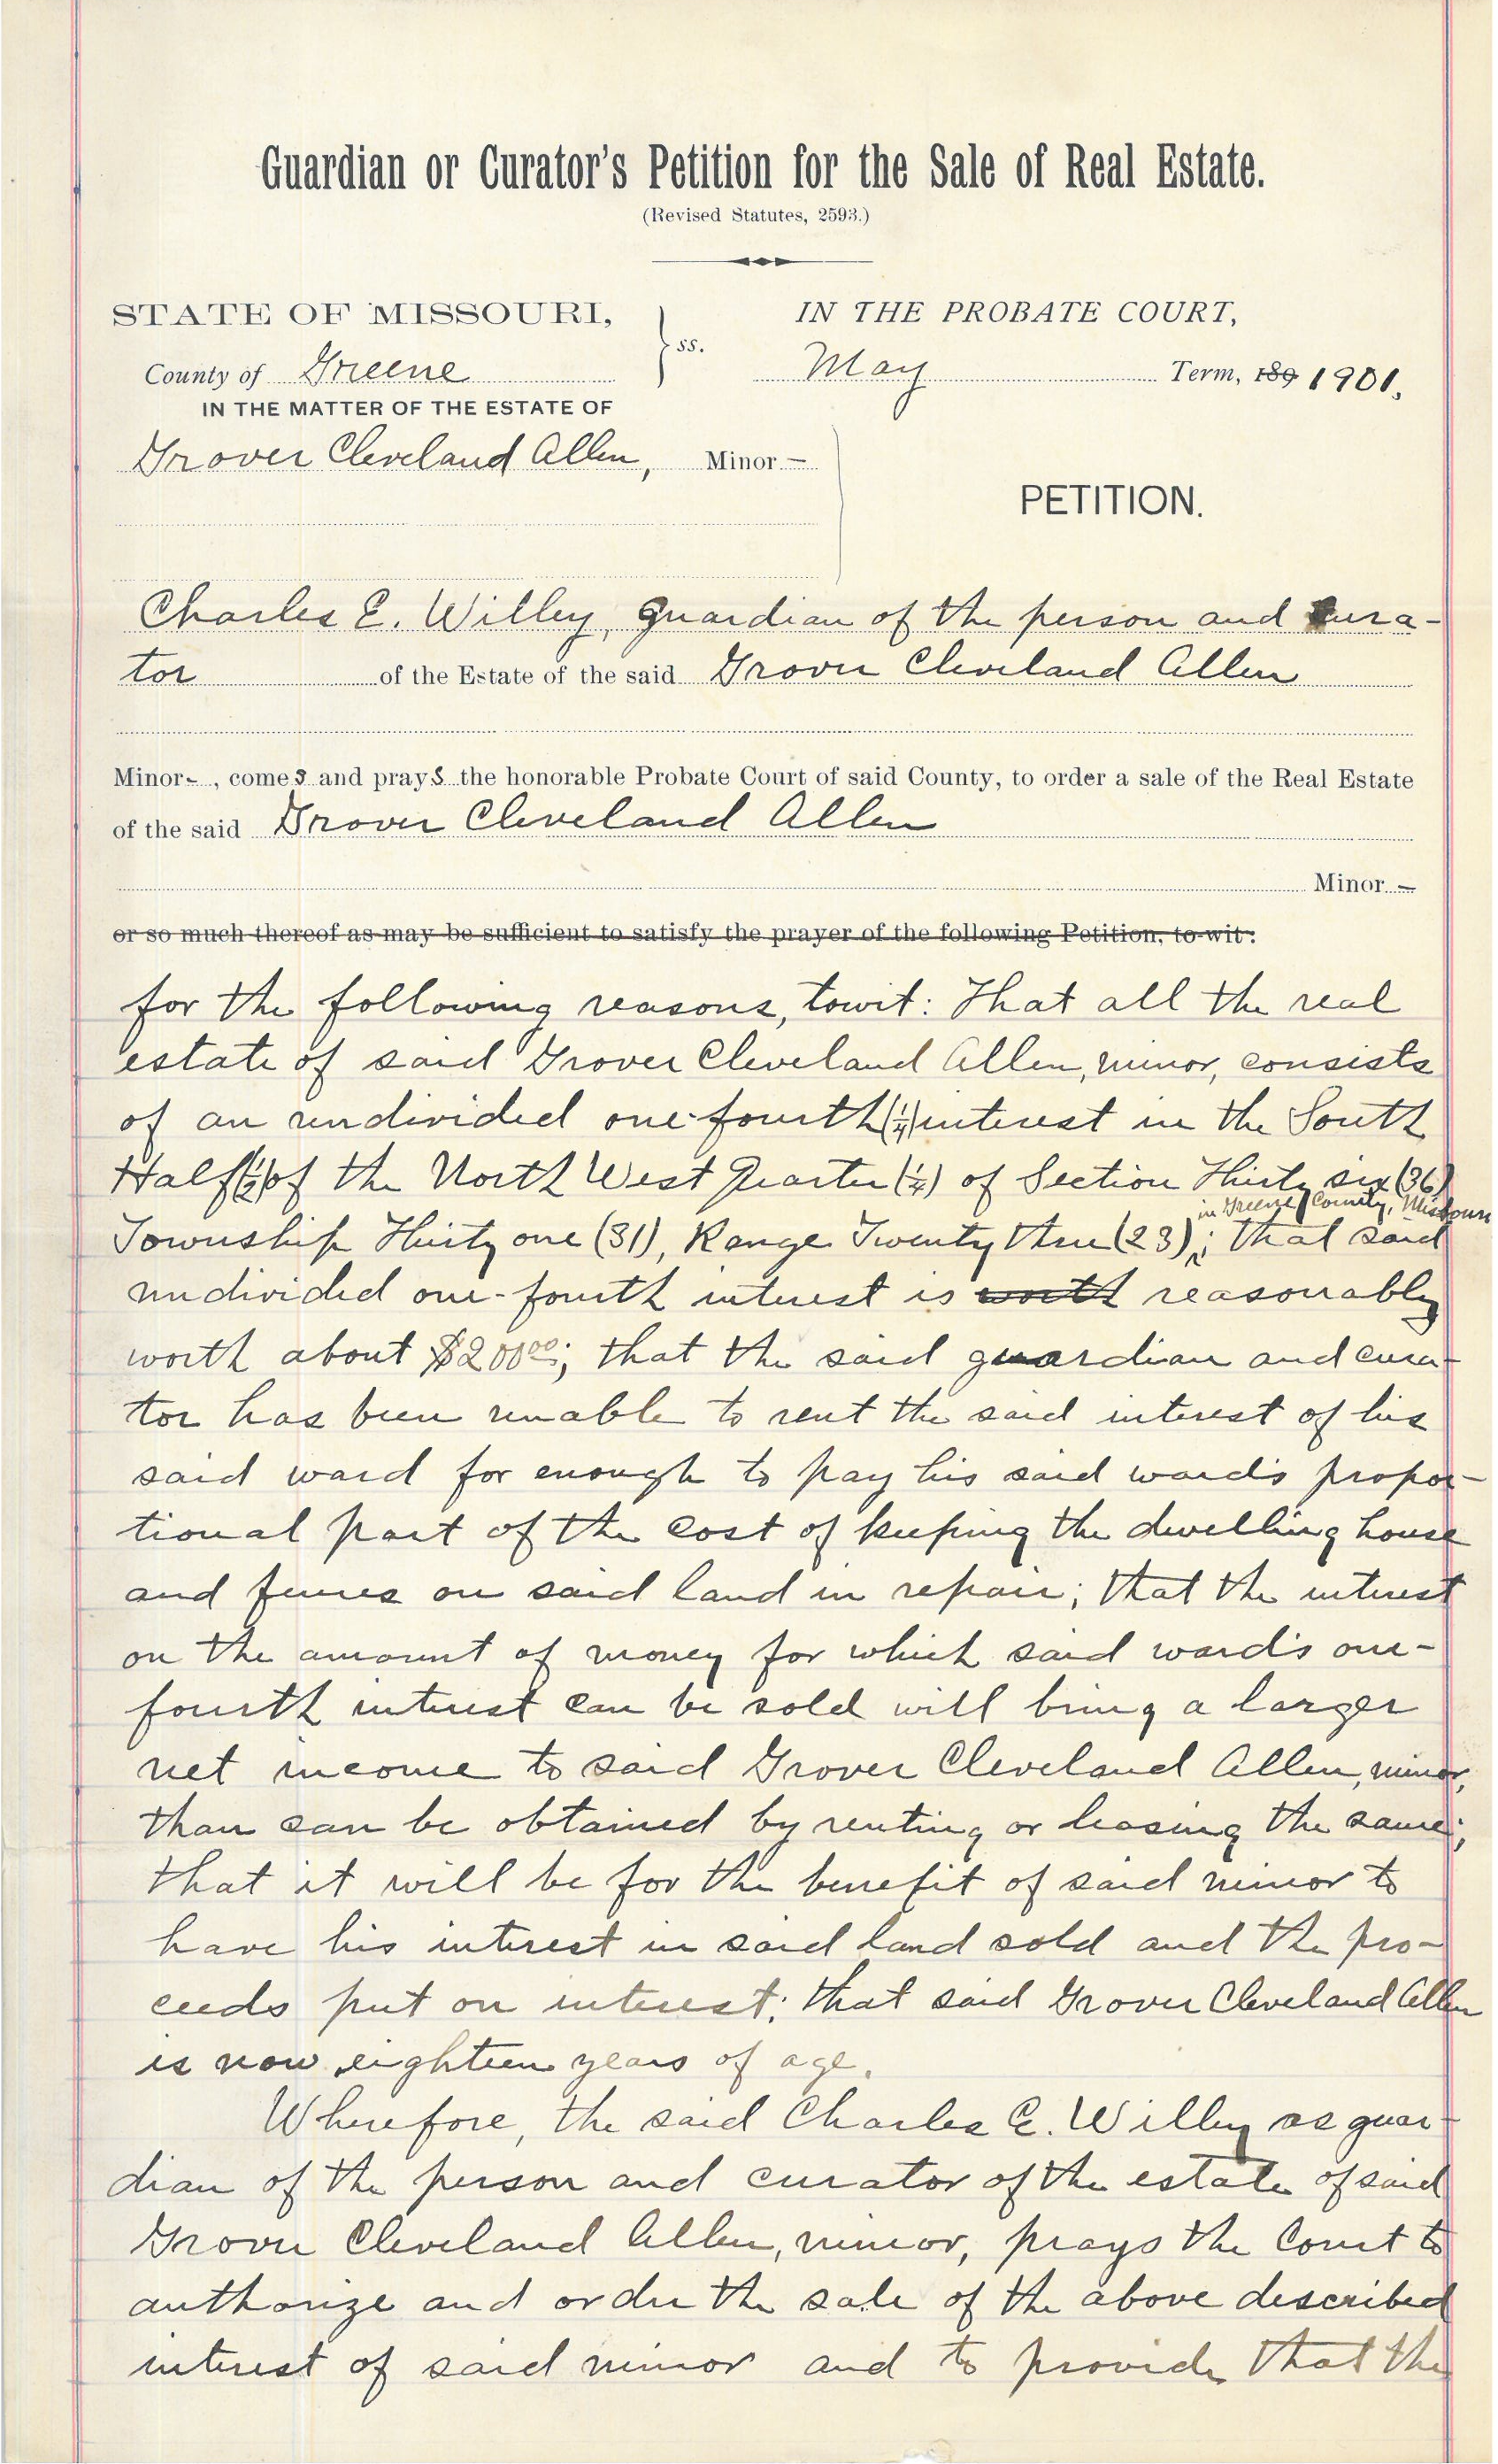 Guardian or Curator's Petition for the Sale of Real Estate.
(Revised Statutes, 2593.)
STATE OF MISSOURI,
County of Greene
ss.
IN THE PROBATE COURT,
May Term, 189 1901.
IN THE MATTER OF THE ESTATE OF
Grover Cleveland Allen, Minor –
PETITION.
Charles E. Willey, guardian of the person and cura-
tor of the Estate of the said Grover Cleveland Allen
Minor -, comes and prays the honorable Probate Court of said County, to order a sale of the Real Estate
of the said Grover Cleveland Allen
Minor –
or so much thereof as may be sufficient to satisfy the prayer of the following Petition, to-wit:
for the following reasons, towit: That all the real
estate of said Grover Cleveland Allen, minor, consists
of an undivided one-fourth (1/4) interest in the South
Half (1/2) of the North West Quarter (1/4) of Section Thirty six (36)
in Greene County, Missouri
Township Thirty one (31), Range Twenty three (23); that said
undivided one-fourth interest is worth reasonably
worth about $200.00; that the said guardian and cura-
tor has been unable to rent the said interest of his
said ward for enough to pay his said ward's propor-
tional part of the cost of keeping the dwelling house
and fences on said land in repair; that the interest
on the amount of money for which said ward's one-
fourth interest can be sold will bring a larger
net income to said Grover Cleveland Allen, minor,
than can be obtained by renting or leasing the same;
that it will be for the benefit of said minor to
have his interest in said land sold and the pro-
ceeds put on interest; that said Grover Cleveland Allen
is now eighteen years of age.
Wherefore, the said Charles E. Willey as guar-
dian of the person and curator of the estate of said
Grover Cleveland Allen, minor, prays the Court to
authorize and order the sale of the above described
interest of said minor and to provide that the